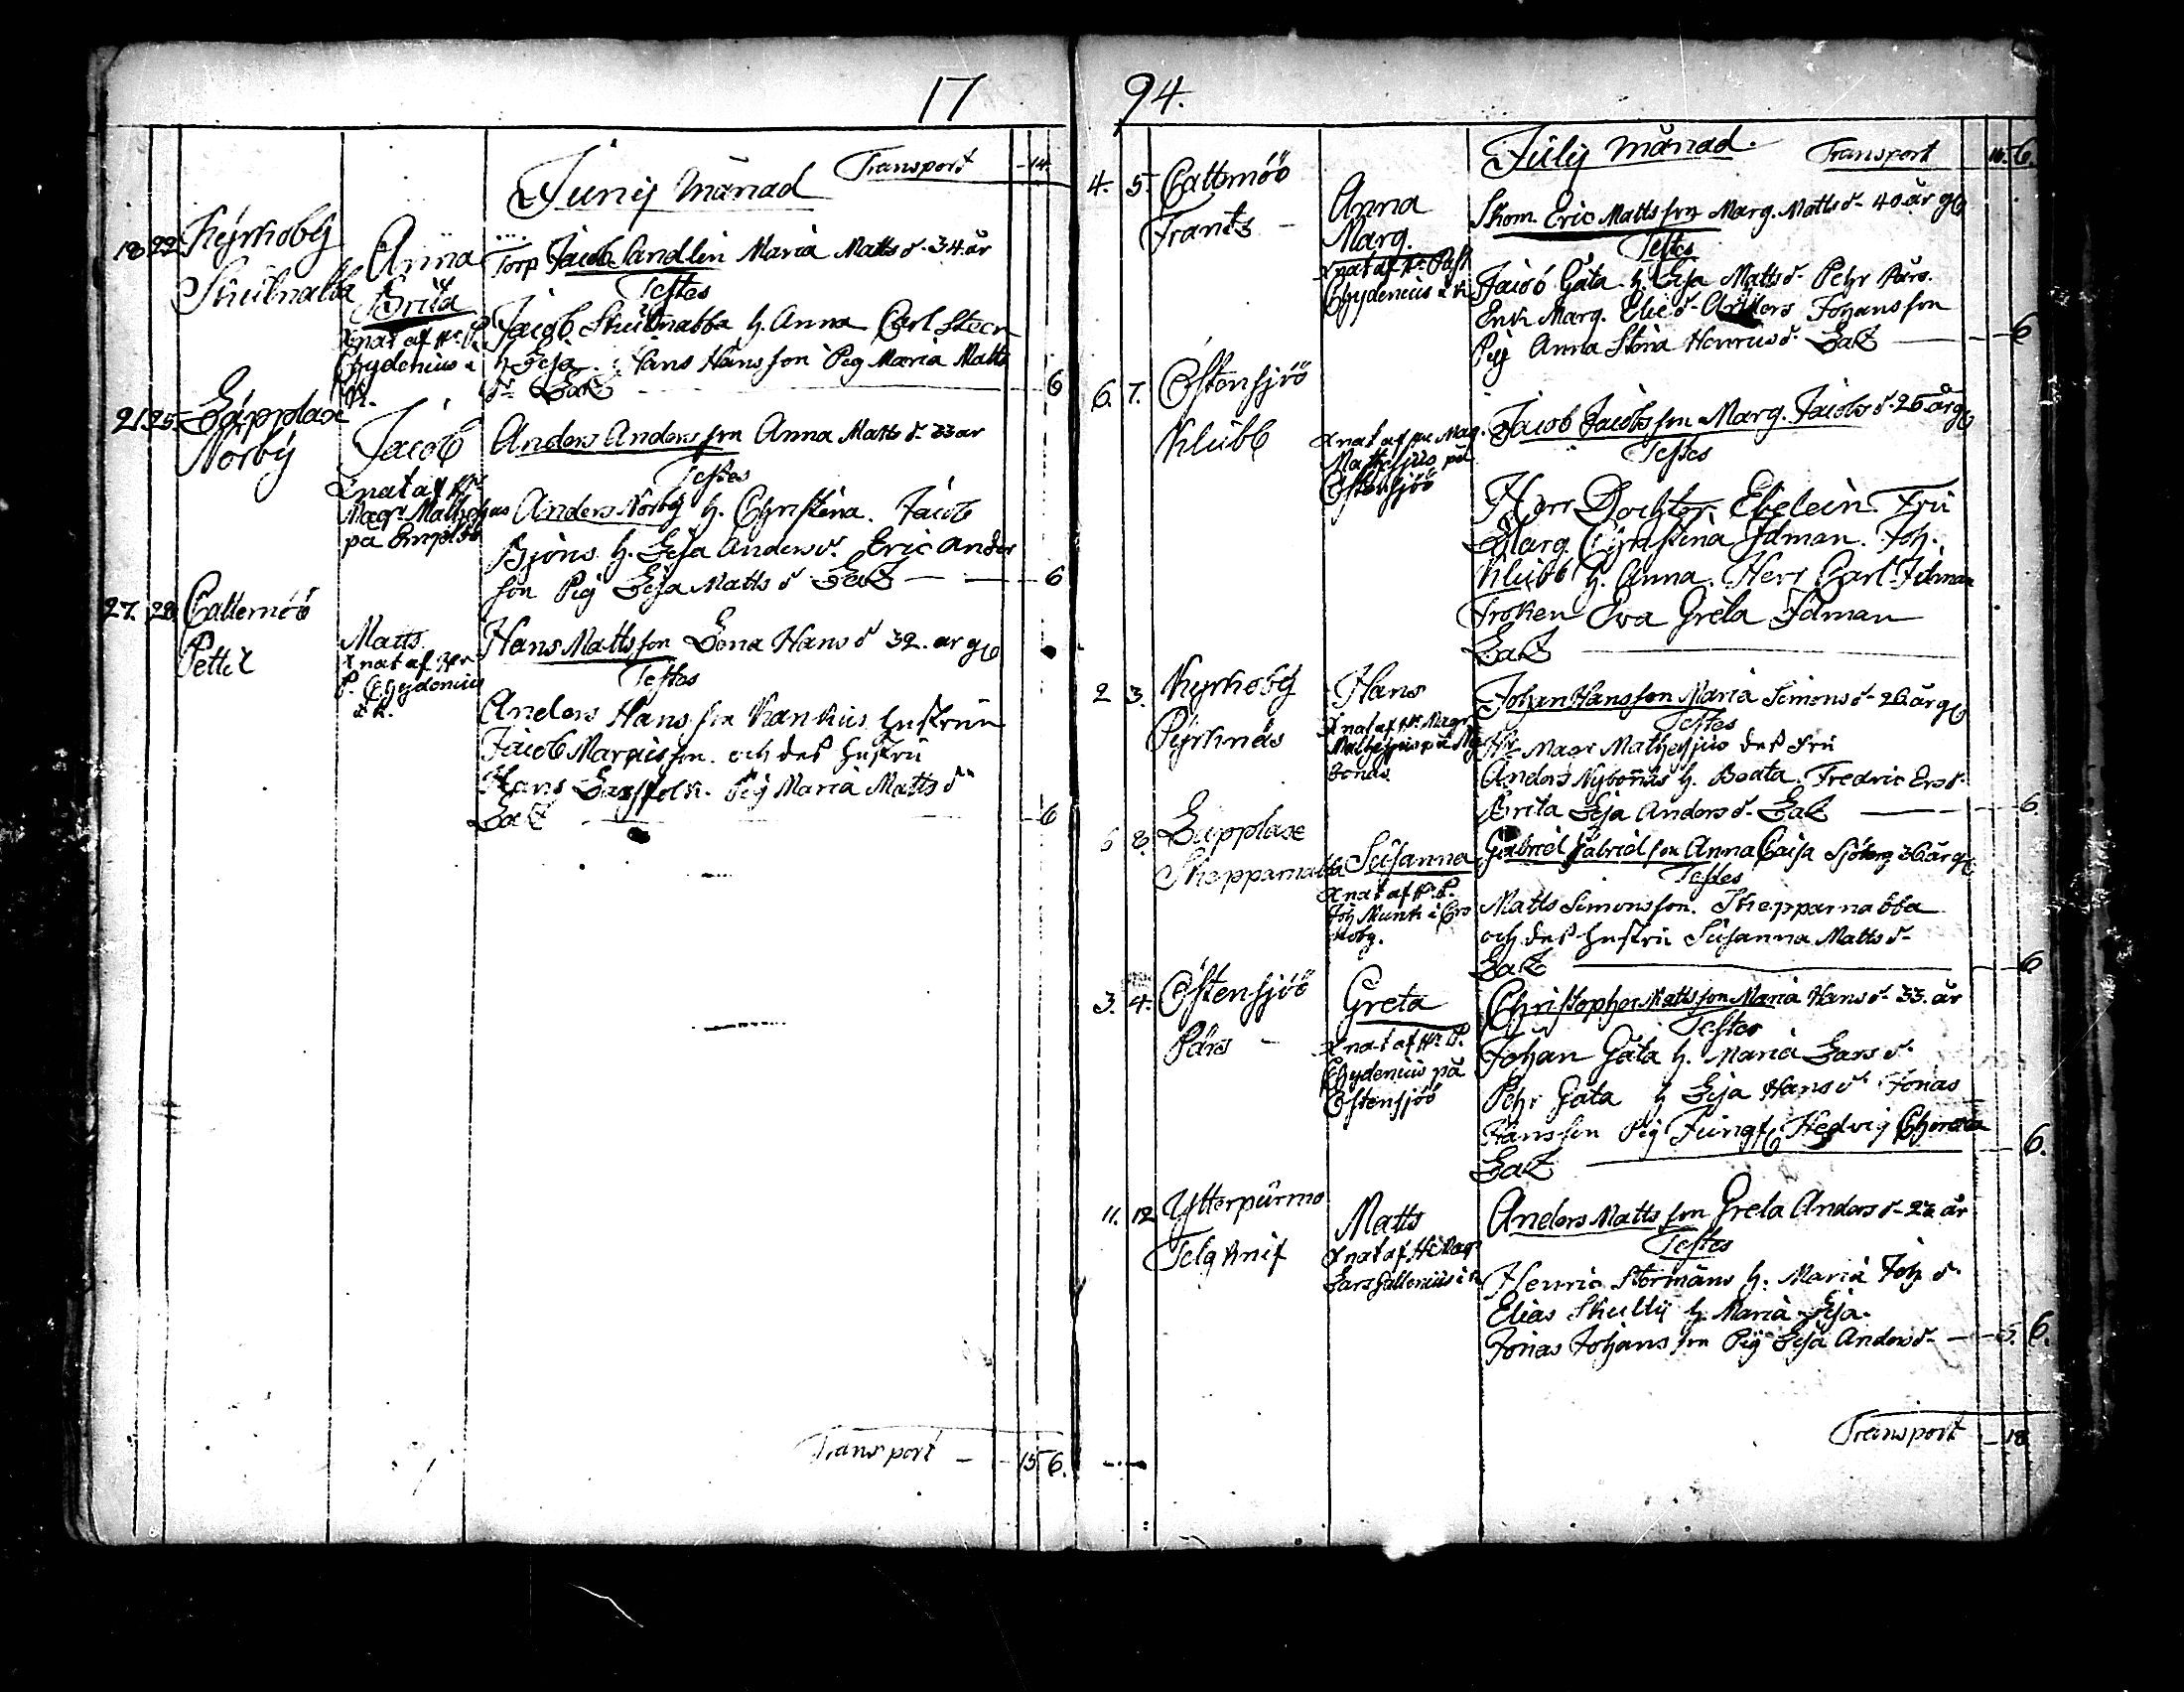 17
Transport 14
Junij månad
18 22 Kyrkoby
Skutnabba
Anna
Brita
Xnat af Hr P.
Chydenius i
K.
Torp Jacob Sandlin Maria Matts d. 34 år
Testes
Jacob Skutnabba h. Anna Carl Steen
h. Lisa. Hans Hansson Pig Maria Matts
dr. Lat 6
21 25 Lapplax
Norby
Jacob
Xnat af Hr
Magr Mathesius
på
Anders Andersson Anna Matts d. 33 år
Testes
Anders Norby h. Christina. Jacob
Björns h. Lisa Anders d. Eric Anders
son Pig Lisa Matts d Lat 6
27. 28 Cattemöö
Petter
Matts
Xnat af Hr
P. Chydenius
i K.
Hans Mattsson Lena Hans d 32. år gl
Testes
Anders Hansson Kankus hustrun
Jacob Marcusson och des hustru
Hans Lassfolk. Pig Maria Matts dr
Lat 6
Transport 15 6.
94.
July månad.
Transport 15. 6.
4. 5. Cattemöö
Frants
Anna
Marg.
Xnat af Hr Past
Chydenius i K
Skom. Eric Mattsson Marg. Matts d. 40 år gl
Testes
Jacob Gäta h. Lisa Matts d. Pehr Pärs.
Enk Marg. Elis d. Anders Johansson
Pig Anna Stina Henrics d. Lat 6
6. 7. Östensjöö
Klubb
Xnat af Hr Mag.
Mathesius på
Östensjöö
Jacob Jacobsson Marg. Jacobs d. 26 år gl
Testes
Herr Dochtor Ebelein Fru
Marg. Christina Idman. Joh.
Klubb h. Anna. Herr Carl Idman
Fröken Eva Greta Idman
Lat
2 3. Kyrkoby
Pyrknäs
Hans
Xnat af Hr. Magr
Mathesius på Ny
bonäs
Johan Hansson Maria Simons d. 26 år gl
Testes
Hr Magr Mathesius des Fru
Anders Nybonäs h. Beata. Fredric Ers d.
Brita Lisa Anders d. Lat 6.
6 8. Lapplax
Skepparnabba
Susanna
Xnat af Hr. P.
Joh Munk i Cro
noby.
Gabriel Gabrielson Anna Caisa Sjöberg 36 år gl
Testes
Matts Simonsson. Skepparnabba
och des hustru Susanna Matts d.
Lat 6
3. 4. Östensjöö
Pärs
Greta
Xnat af Hr. P.
Chydenius på
Östensjöö
Christopher Mattsson Maria Hans d. 33. år
Testes
Johan Gäta h. Maria Lars d.
Pehr Gäta h Lisa Hans d. Jonas
Hansson Pig Jungf. Hedvig
Lat 6.
11. 12 Ytterpurmo
Telgknif
Matts
Xnat af Hr Mag
Lars Gallenius i K
Anders Mattsson Greta Anders d. 27 år
Testes
Henric Stormåns h. Maria Joh d.
Elias Skulty h. Maria Lisa.
Jonas Johansson Pig Lisa Anders d. 5. 6.
Transport 18